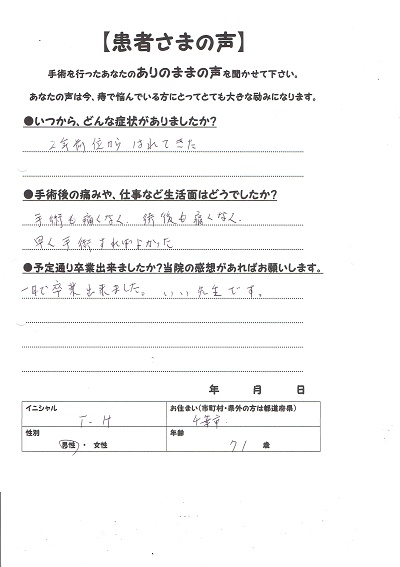 【患者さまの声】
手術を行ったあなたのありのままの声を聞かせて下さい。
あなたの声は今、痔で悩んでいる方にとってとても大きな励みになります。
●いつから、どんな症状がありましたか?
2年前位から はれてきた
●手術後の痛みや、仕事など生活面はどうでしたか?
手術も痛くなく、術後も痛くなく、
早く手術すればよかった
●予定通り卒業出来ましたか?当院の感想があればお願いします。
一日で卒業出来ました。 いい先生です。
年 月 日
イニシャル お住まい(市町村・県外の方は都道府県)
T-H 千葉市
性別 年齢
男性・女性 71 歳